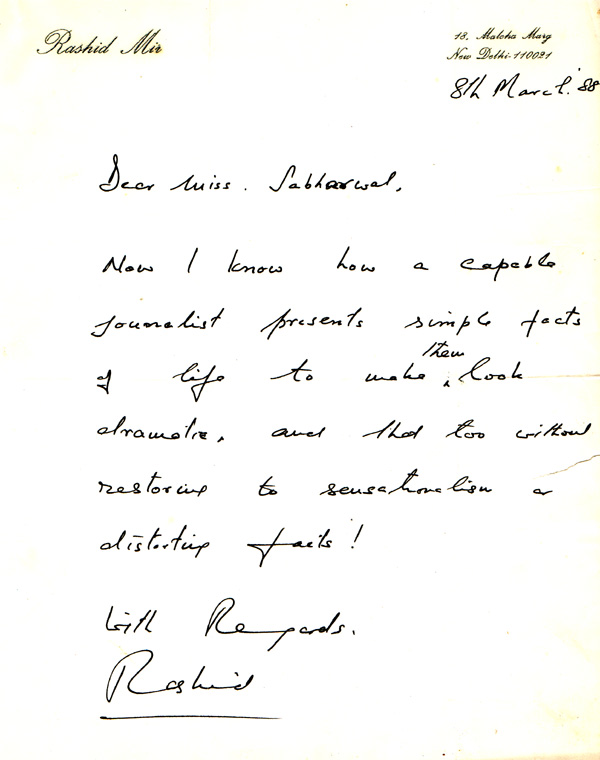 Rashid Mir
18, Malcha Marg
New Delhi-110021
8th March '88
Dear Miss. Sabharwal,
Now I know how a capable
journalist presents simple facts
of life to make them look
dramatic, and that too without
restoring to sensationalism or
distorting facts!
With Regards.
Rashid